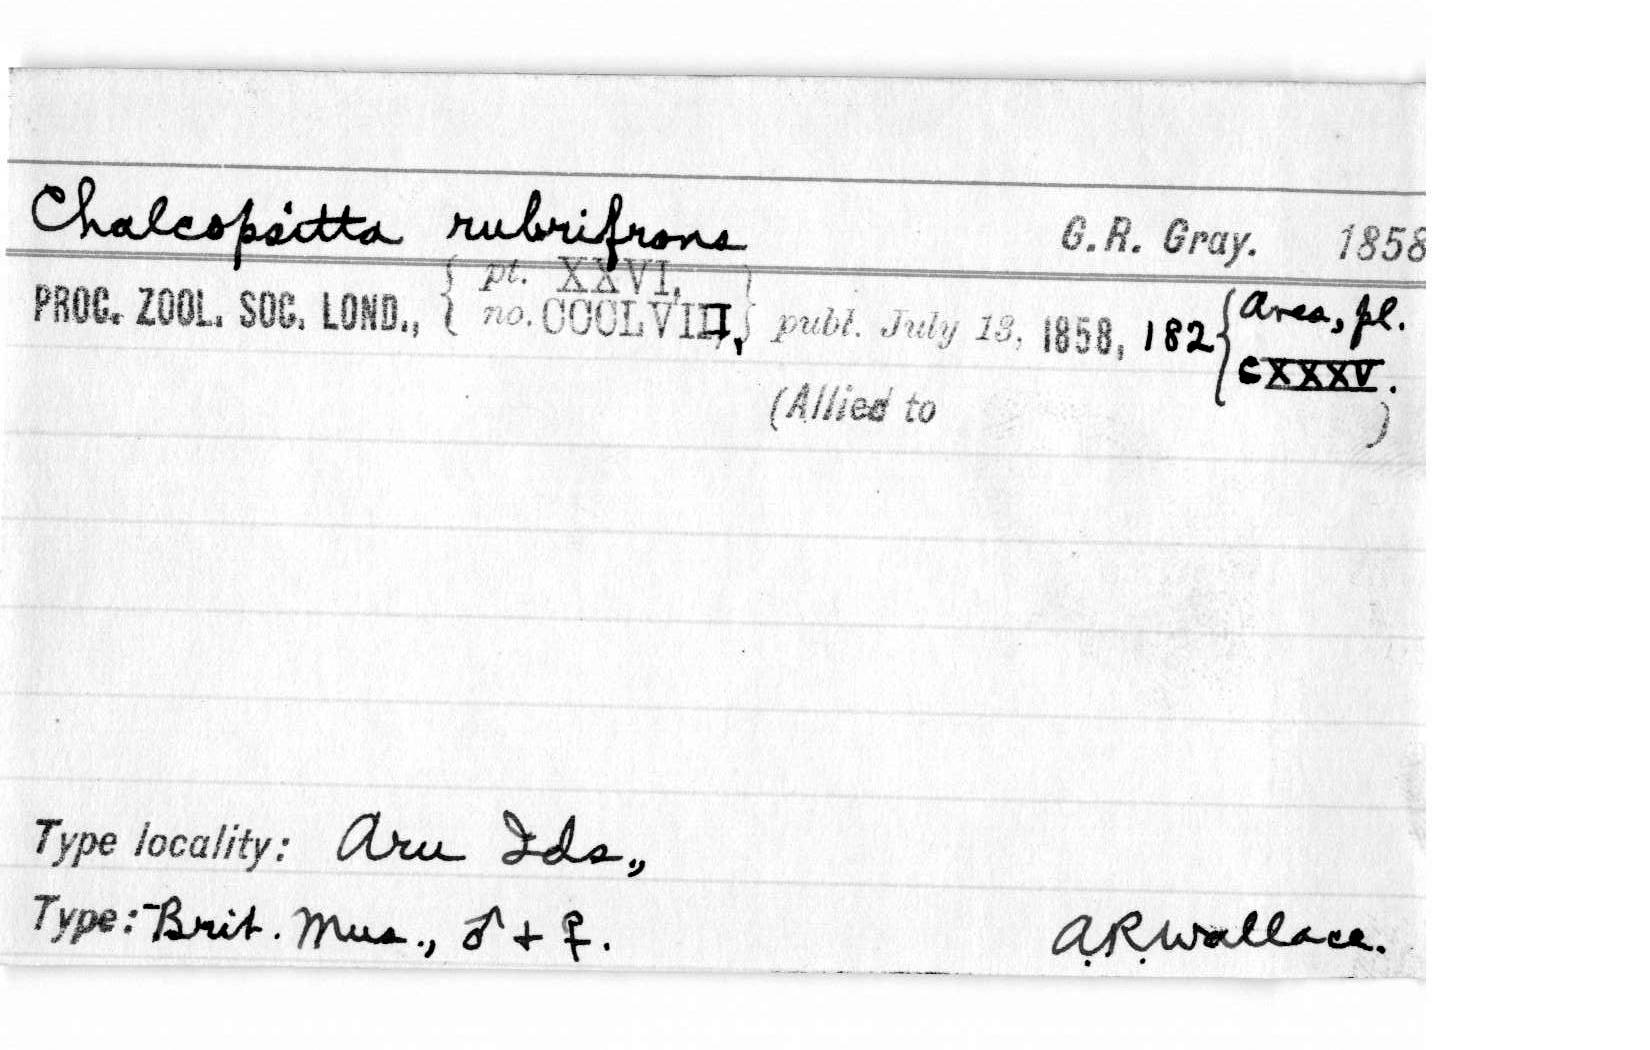 Chalcopsitta rubrifrons G.R. Gray. 1858
PROC. ZOOL. SOC. LOND., { pt. XXVI, no. CCCLVIII, } publ. July 13, 1858, 182 { Aves, pl. CXXXV.
(Allied to )
Type locality: Aru Ids.,
Type: Brit. Mus., ♂ + ♀. A.R. Wallace.